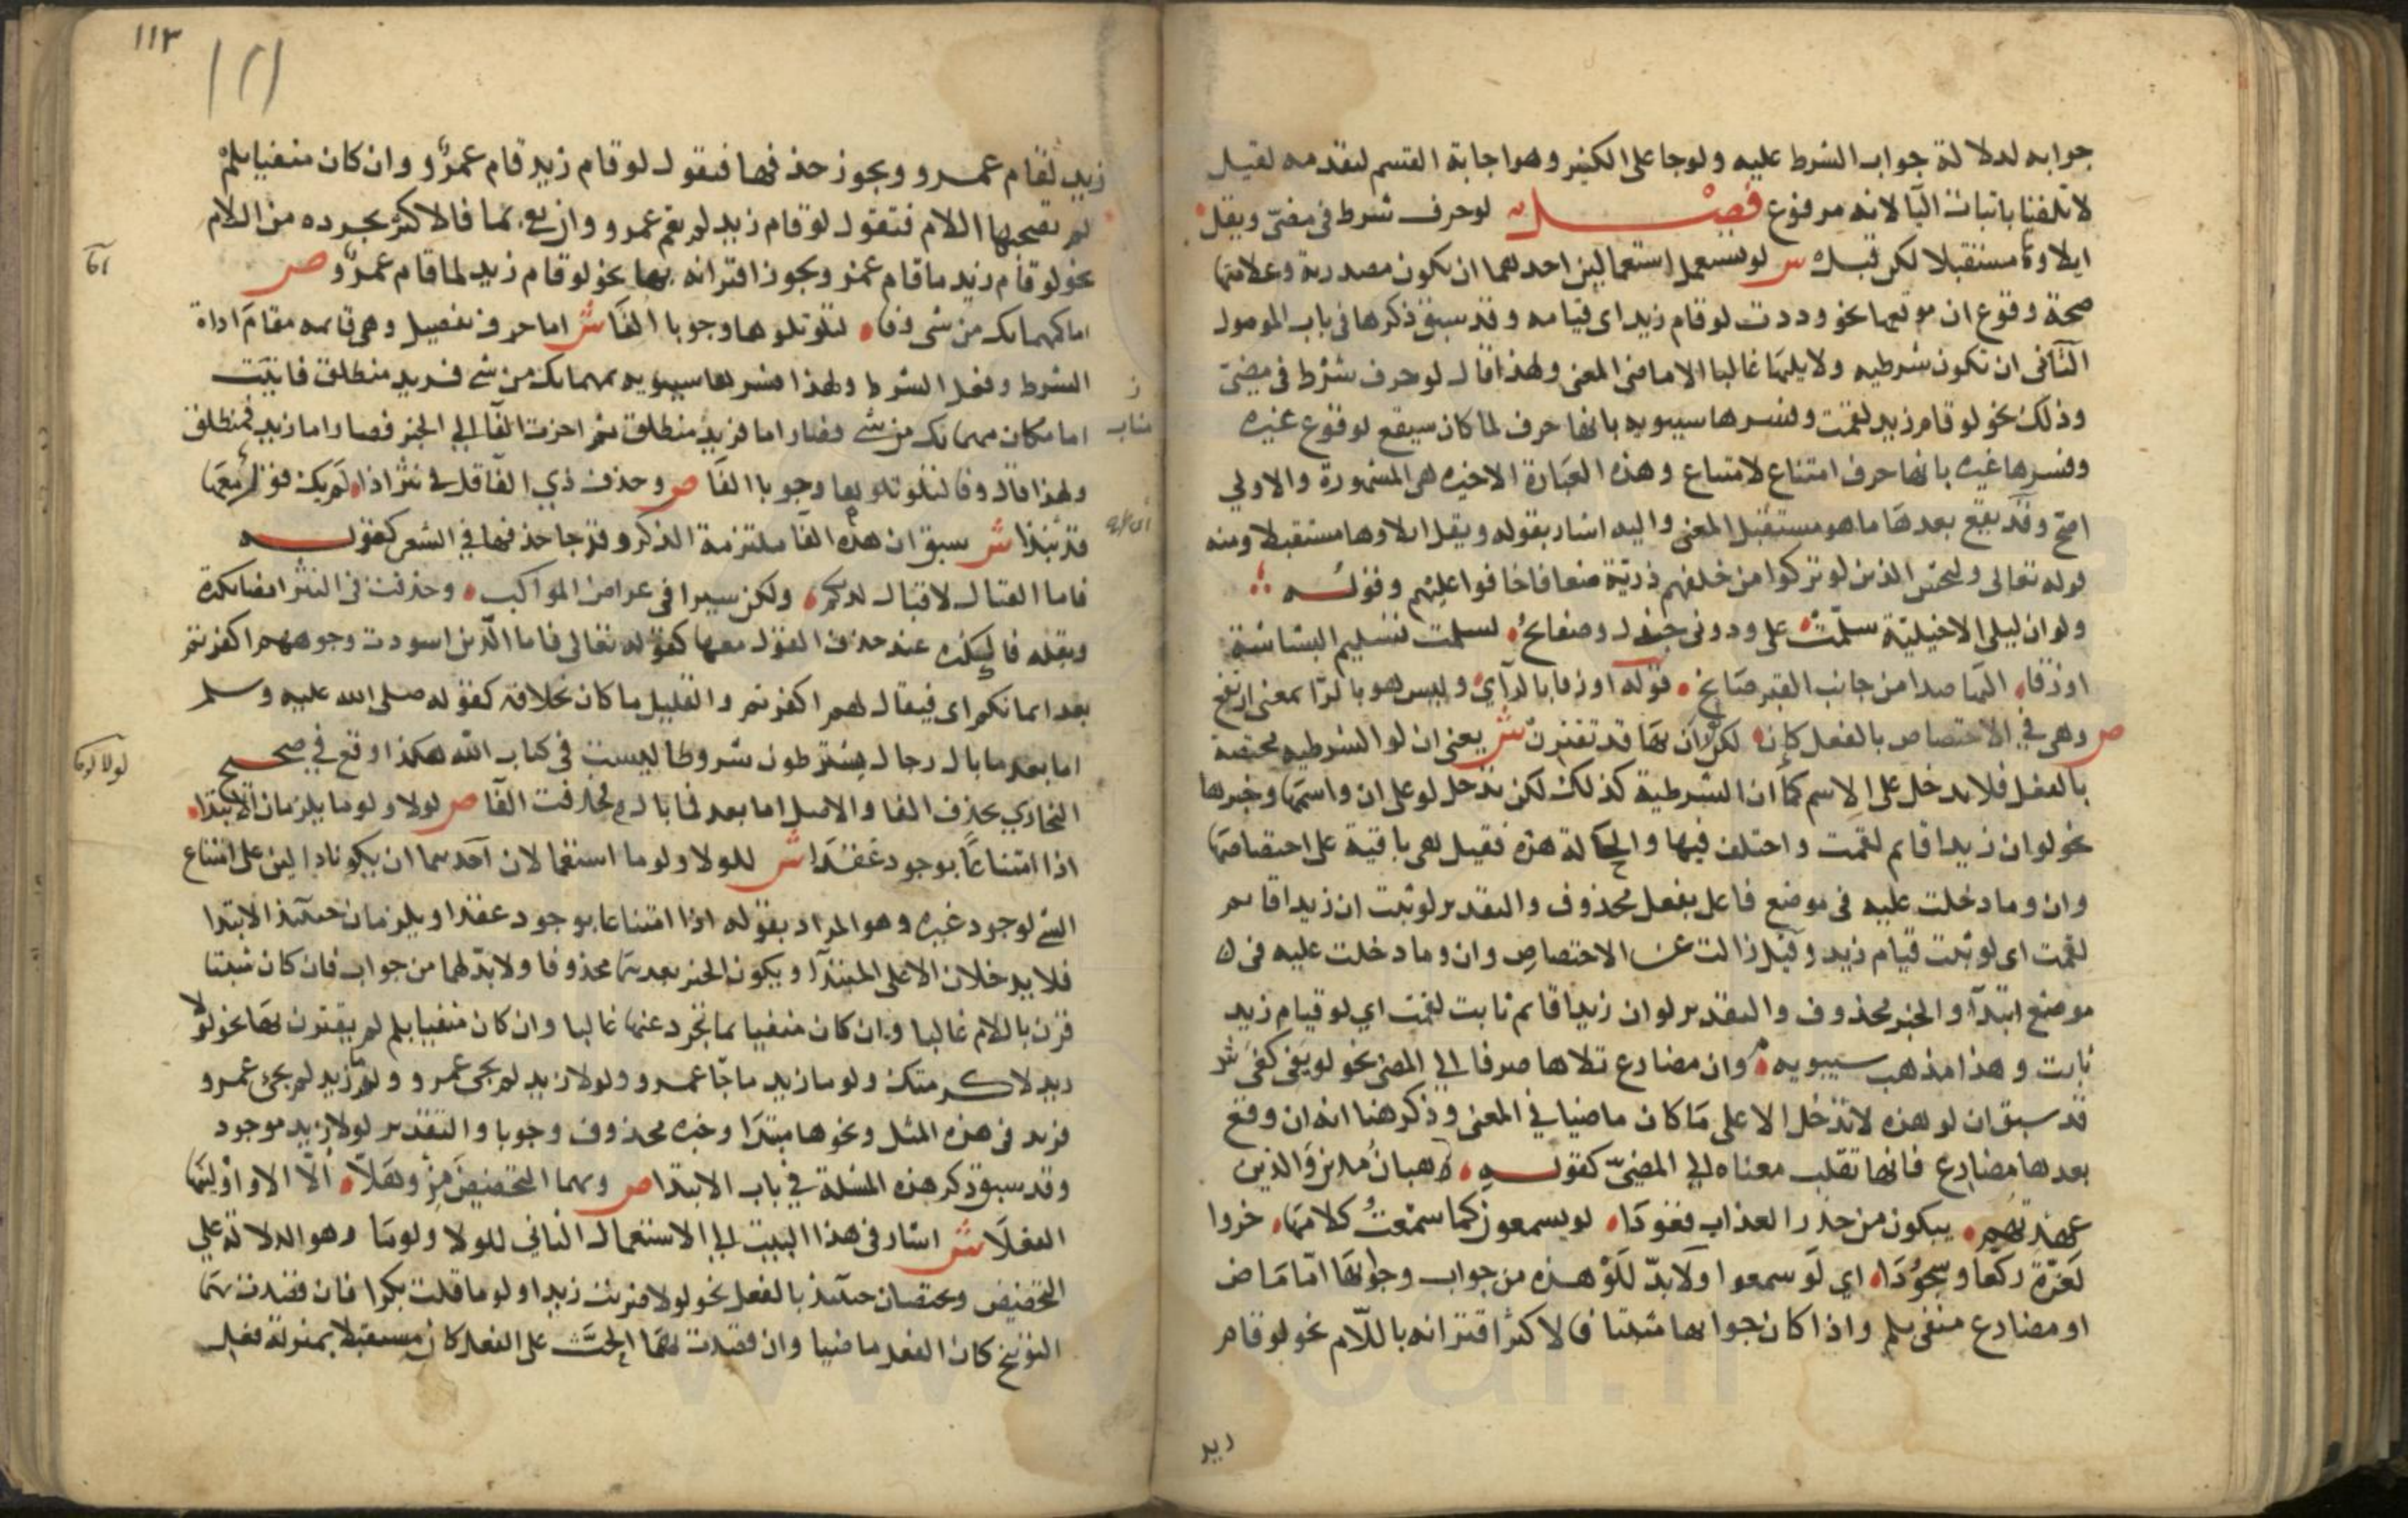 جوابه لدلالة جواب الشرط عليه ولو جا على الكثير وهو اجابة القسم لتقدمه لقيل
لا تلفنا باثبات اليا لانه مرفوع فصل لو حرف شرط في مضي ويقل
ايلاوها مستقبلا لكن قبل ش لو تستعمل استعمالين احدهما ان تكون مصدرية وعلامتها
صحة وقوع ان موقعها نحو وددت لو قام زيد اي قيامه وقد سبق ذكرها في باب الموصول
الثاني ان تكون شرطيه ولا يليها غالبا الا ماضي المعنى ولهذا قال لو حرف شرط في مضيّ
وذلك نحو لو قام زيد لقمت وفسرها سيبويه بانها حرف لما كان سيقع لوقوع غيره
وفسرها غيره بانها حرف امتناع لامتناع وهذه العبارة الاخيره هي المشهورة والاولي
اصح وقد يقع بعدها ما هو مستقبل المعنى واليه اشار بقوله ويقل ايلاوها مستقبلا ومنه
قوله تعالى وليخش الذين لو تركوا من خلفهم ذرية ضعافا خافوا عليهم وقوله
ولو ان ليلى الاخيلية سلمت علي ودوني جندل وصفائح لسلمت تسليم البشاشة
او زقا اليها صدا من جانب القبر صايح قوله او زقا بالزاي وليس هو بالرا بمعنى ارتفع
ص وهي في الاختصاص بالفعل كإن لكن لو ان بها قد تقترن ش يعنى ان لو الشرطيه مختصة
بالفعل فلا تدخل على الاسم كما ان ان الشرطية كذلك لكن تدخل لو على ان واسمها وخبرها
نحو لو ان زيدا قايم لقمت واختلف فيها والحالة هذه فقيل هي باقية على اختصاصها
وان وما دخلت عليه في موضع فاعل بفعل محذوف والتقدير لو ثبت ان زيدا قايم
لقمت اي لو ثبت قيام زيد وقيل زالت عن الاختصاص وان وما دخلت عليه في
موضع ابتدآ والخبر محذوف والتقدير لو ان زيدا قايم ثابت لقمت اي لو قيام زيد
ثابت وهذا مذهب سيبويه وان مضارع تلاها صرفا الي المضي نحو لو يفي كفى ش
قد سبق ان لو هذه لا تدخل الا على ما كان ماضيا في المعنى وذكر هنا انه ان وقع
بعدها مضارع فانها تقلب معناه الي المضيّ كقوله رهبان مدين والذين
عهدتهم يبكون من حذر العذاب قعودا لو يسمعون كما سمعت كلامها خروا
لعزة ركعا وسجودا اي لو سمعوا ولا بدّ للو هذه من جواب وجوابها اما ماض
او مضارع منفي بلم واذا كان جوابها مثبتا فالاكثر اقترانه باللام نحو لو قام
زيد
١١٣
زيد لقام عمرو ويجوز حذفها فتقول لو قام زيد قام عمرو وان كان منفيا بلم
لم تصحبها اللام فتقول لو قام زيد لم يقم عمرو وان نفي بما فالاكثر تجرده من اللام
نحو لو قام زيد ما قام عمرو ويجوز اقترانه بها نحو لو قام زيد لما قام عمرو ص
اما كمهما يك من شي وفا لتلو تلوها وجوبا الفا ش اما حرف تفصيل وهي قايمه مقام اداة
الشرط وفعل الشرط ولهذا فسرها سيبويه بمهما يك من شي فزيد منطلق فانيبت
اما مكان مهما يك من شي فصار اما فزيد منطلق ثم اخرت الفا الي الخبر فصار اما زيد فمنطلق
ولهذا قال وفا لتلو تلوها وجوبا الفا ص وحذف ذي الفا قل في نثر اذا لم يك قول معها
قد نبذا ش سبق ان هذه الفا ملتزمة الذكر وقد جا حذفها في الشعر كقوله
فاما القتال لا قتال لديكم ولكن سيرا في عراض المواكب وحذفت في النثر ايضا بكثرة
وبقله فالكثره عند حذف القول معها كقوله تعالى فاما الذين اسودت وجوههم اكفرتم
بعد ايمانكم اي فيقال لهم اكفرتم والقليل ما كان بخلافه كقوله صلى الله عليه وسلم
اما بعد ما بال رجال يشترطون شروطا ليست في كتاب الله هكذا وقع في صحيح
البخاري بحذف الفا والاصل اما بعد فما بال فحذفت الفا ص لولا ولوما يلزمان الابتدا
اذا امتناعا بوجود عقدا ش للولا ولوما استعمالان احدهما ان يكونا دالين على امتناع
الشي لوجود غيره وهو المراد بقوله اذا امتناعا بوجود عقدا ويلزمان حينئذ الابتدا
فلا يدخلان الا على المبتدآ ويكون الخبر بعدهما محذوفا ولا بد لهما من جواب فان كان مثبتا
قرن باللام غالبا وان كان منفيا بما تجرد عنها غالبا وان كان منفيا بلم لم يقترن بها نحو لولا
زيد لاكرمتك ولوما زيد ما جا عمرو ولولا زيد لم يجي عمرو ولوما زيد لم يجئ عمرو
فزيد في هذه المثل ونحوها مبتدا وخبره محذوف وجوبا والتقدير لولا زيد موجود
وقد سبق ذكر هذه المسئلة في باب الابتدا ص وبهما التحضيض مز وهلا ألا الا واولينها
الفعلا ش اشار في هذا البيت الي الاستعمال الثاني للولا ولوما وهو الدلالة علي
التحضيض ويختصان حينئذ بالفعل نحو لولا ضربت زيدا ولوما قتلت بكرا فان قصدت بهما
التوبيخ كان الفعل ماضيا وان قصدت بهما الحث على الفعل كان مستقبلا بمنزلة فعل
اما